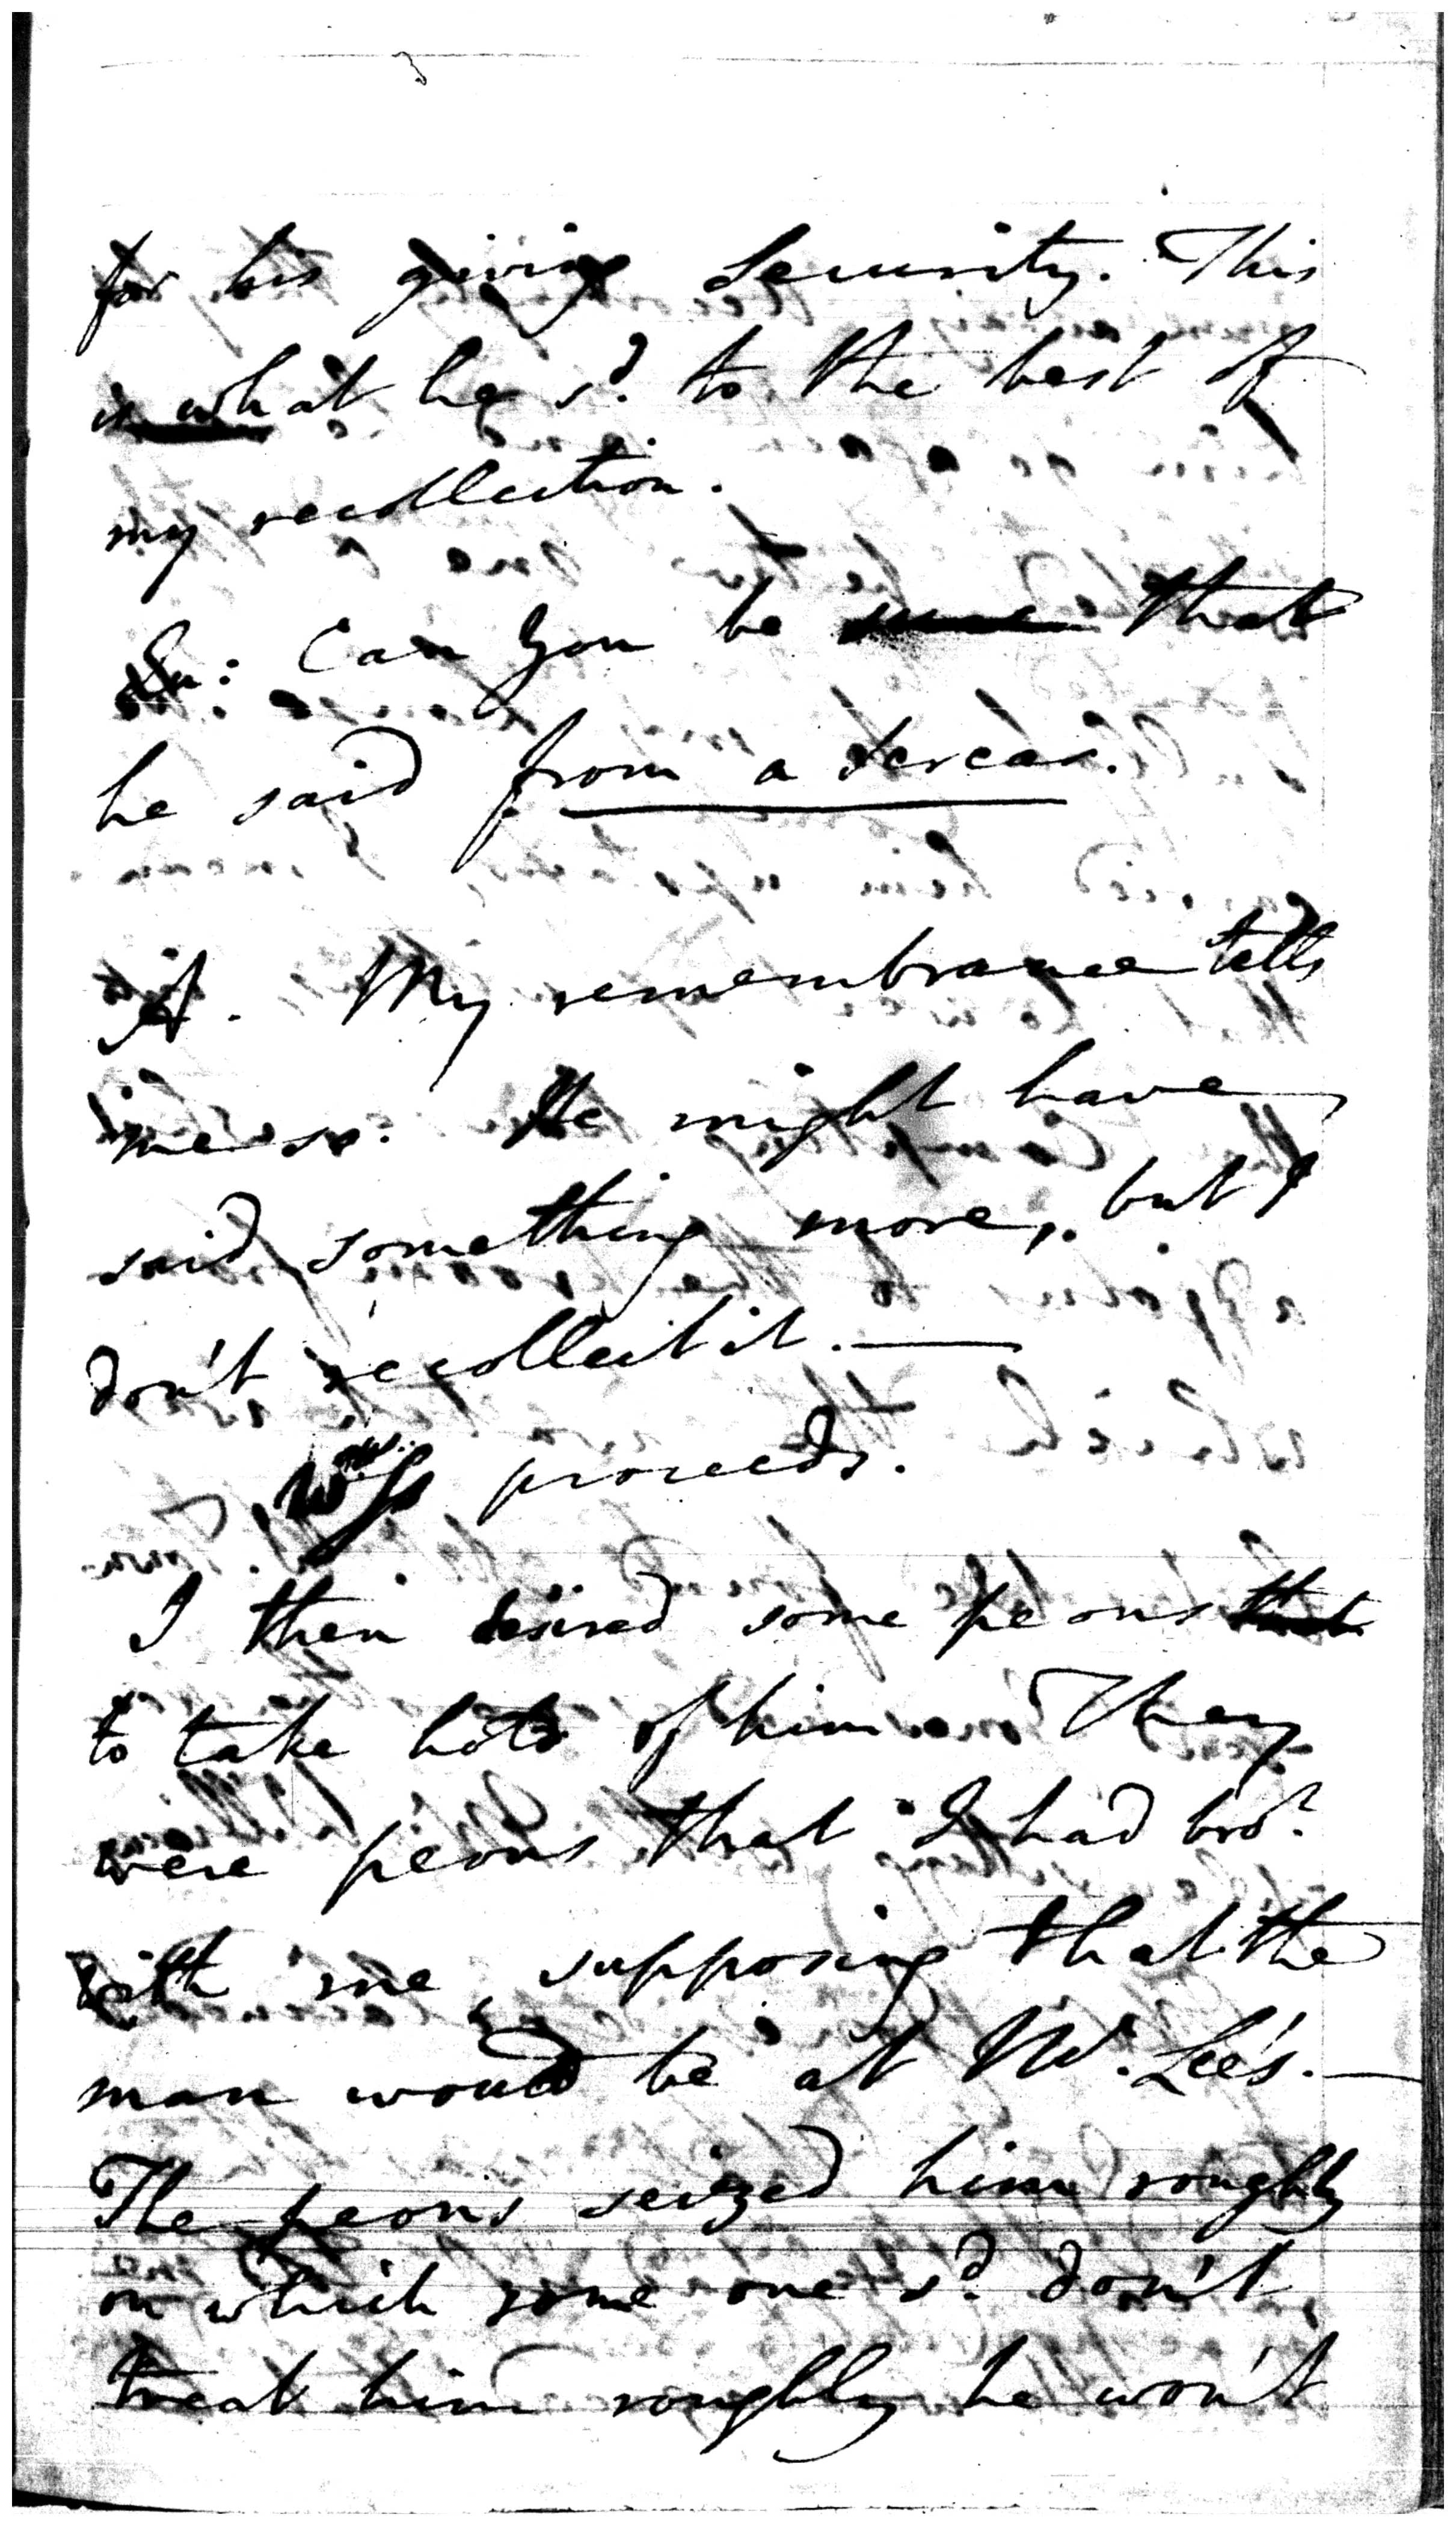 for his giving Security. This
is what he sd. to the best of
my recollection.
Qu: Can you be sure that
he said from a Sercar.
A. My remembrance tells
me so. He might have
said something more, but I
don't recollect it. —
Wss proceeds.
I then desired some peons that
to take hold of him They
were peons that I had brot.
with me, supposing that the
man would be at Mr. Lee's. —
The peons seized him roughly
on which some one sd. don't
treat him roughly he won't